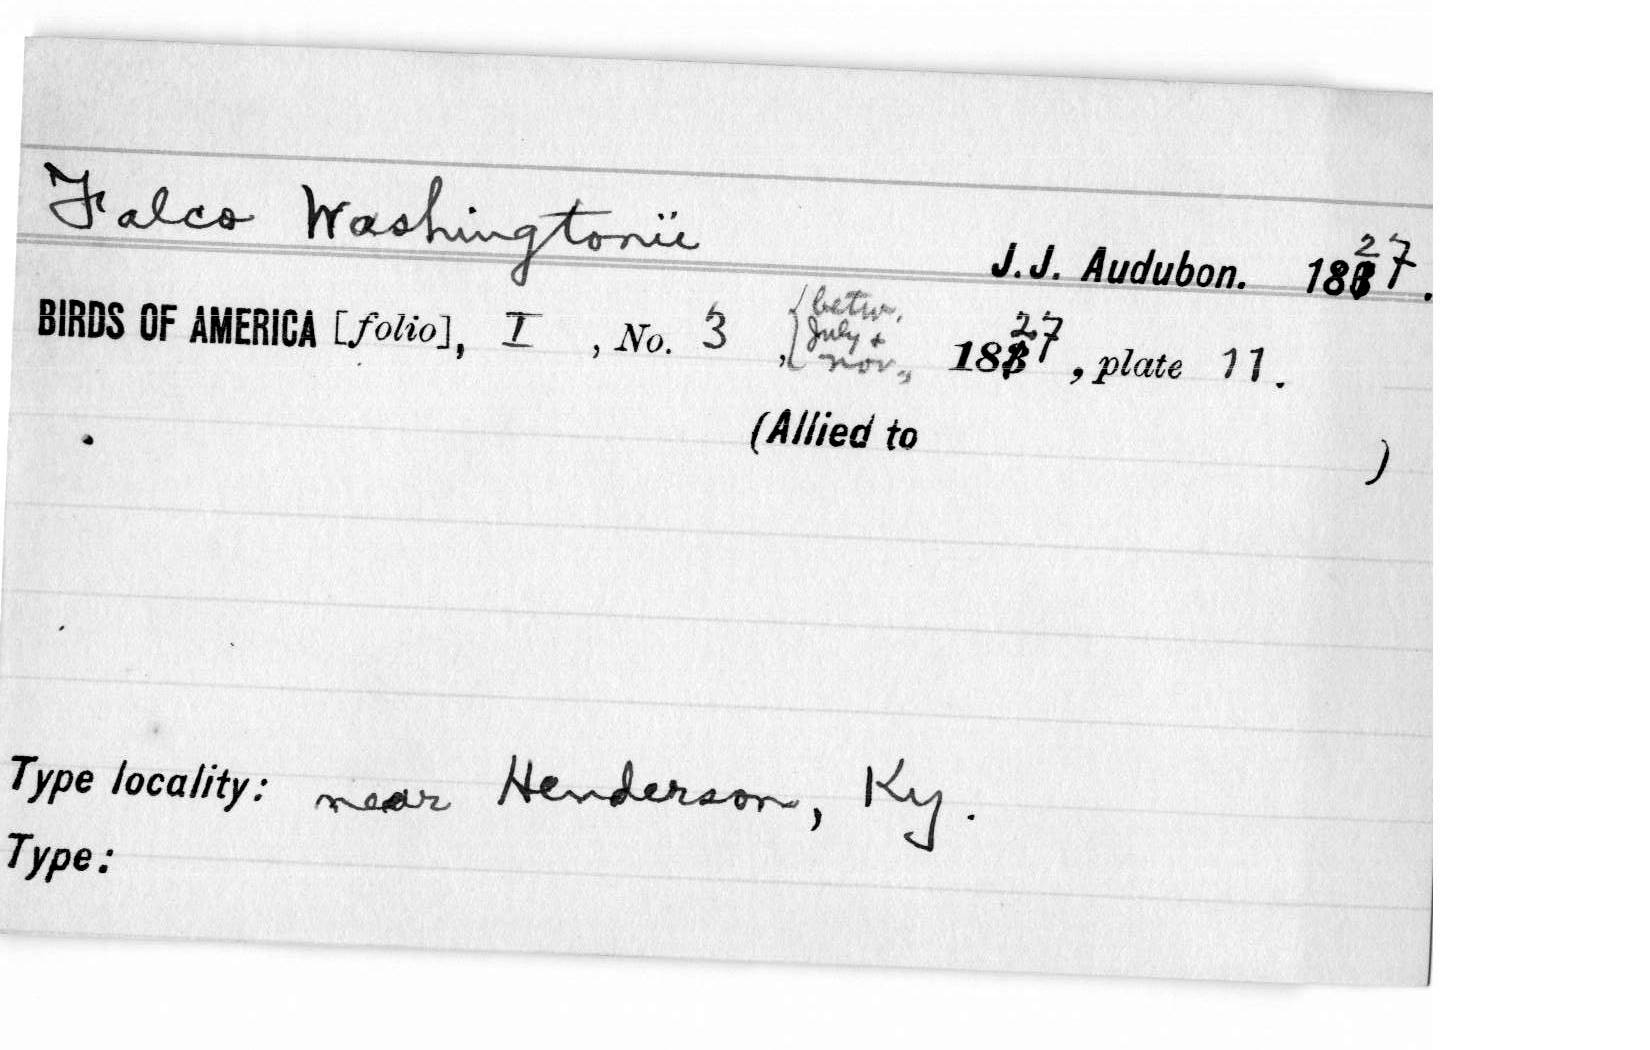 Falco Washingtonii
J.J. Audubon. 1827.
BIRDS OF AMERICA [folio], I, No. 3, {betw. July + Nov., 1827, plate 11.
(Allied to )
Type locality: near Henderson, Ky.
Type: